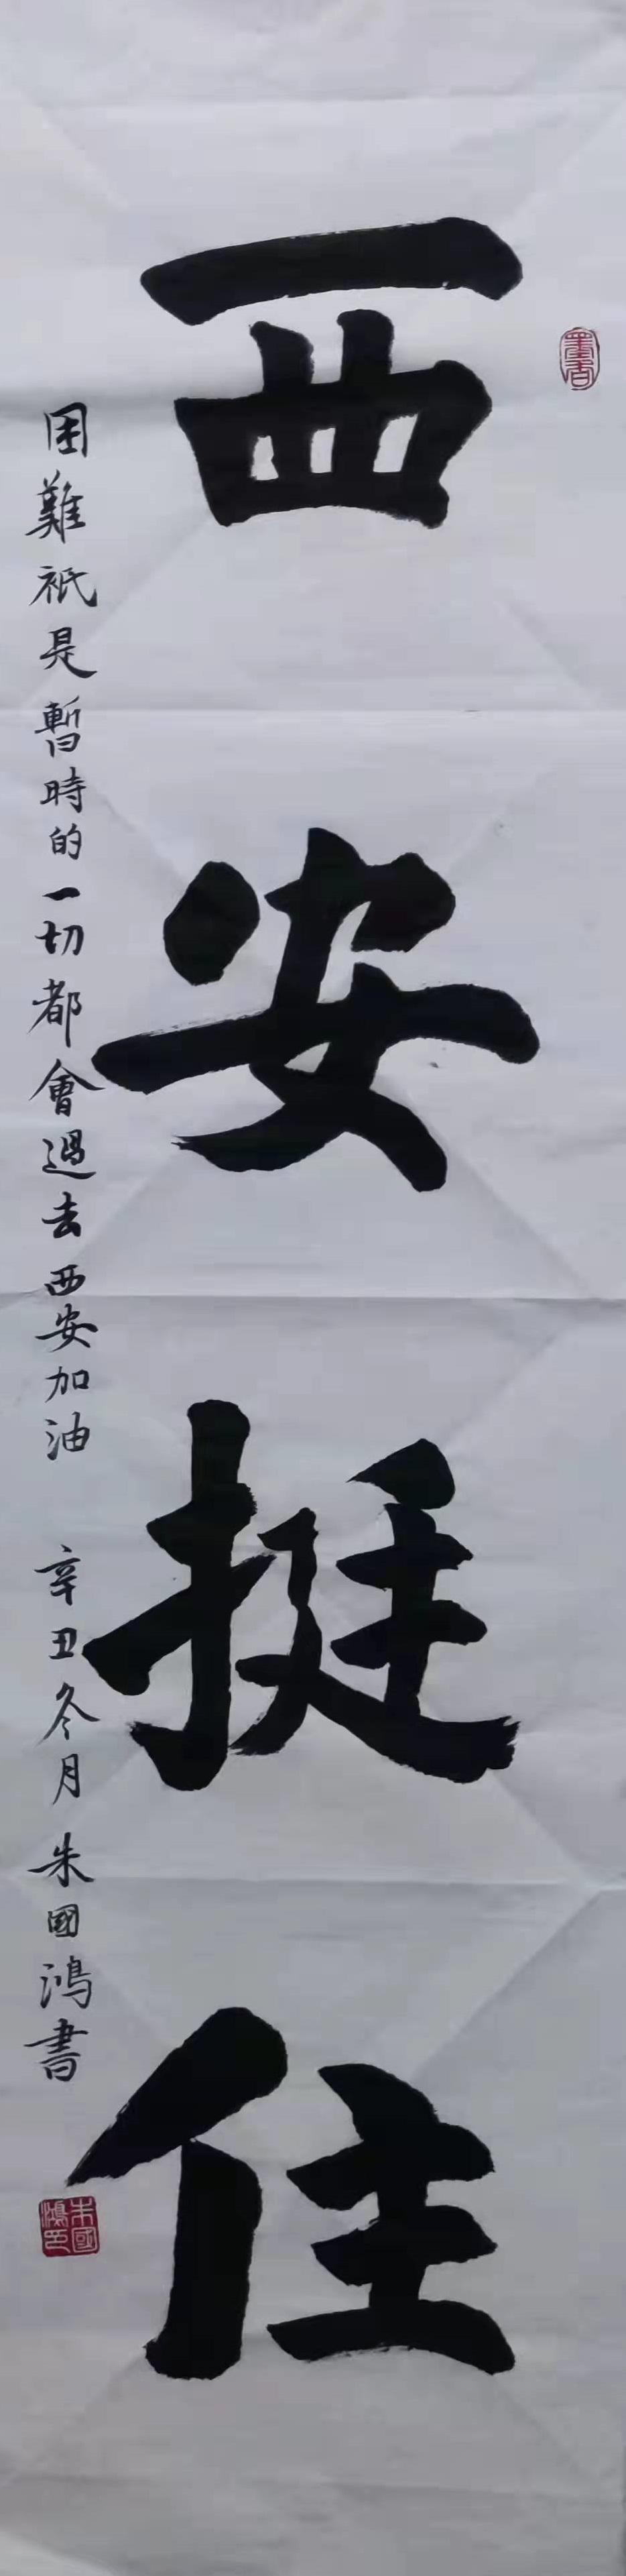 西安挺住
困難祇是暫時的一切都會過去西安加油 辛丑冬月朱國鴻書
朱國鴻印